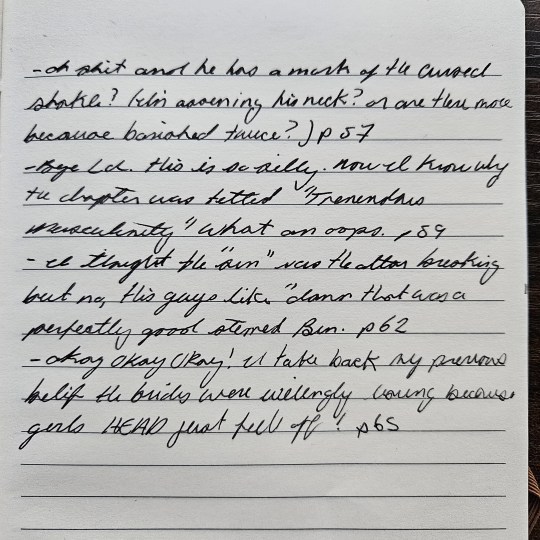 -oh shit and he has a mark of the cursed
shake? (I'm assuming his neck? or are there more
because banished twice?) p 57
-Bye Ld. this is so silly. now I know why
the chapter was titled "Tremendous
masculinity" what an oops. p59
- I thought the "sin" was the altar breaking
but no, this guys like "damn that was a
perfectly good steamed Bun. p62
- okay okay Okay! I take back my previous
belif the brides were willingly coming because
girls HEAD just fell off! p65